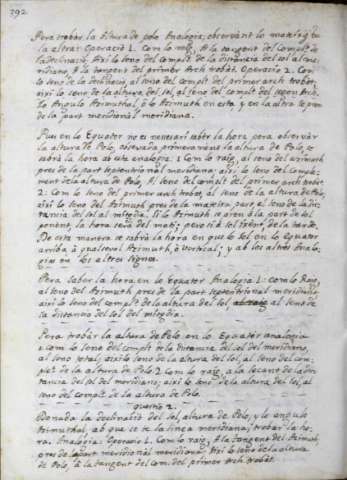 392
Pera trobar la altura de polo Analogia, observant lo mateix q̃ en
la altra: Operació 1. Com lo raig, A la tangent del complt. de
la declinació, Axi lo seno del complt. de la distancia del sol al me-
ridiano, A la tangent del primer Arch trobat. Operacio 2. Com
lo seno de la declinació, al seno del complt. del primer arch trobat,
aixi lo seno de la altura del sol, al seno del complt. del segon Arch.
Lo Angulo Azimuthal, ò lo Azimuth en esta y en la altra se pren
de la part meridional meridiana.
Pues en lo Equator no es necesari saber la hora pera observar
la altura de Polo, observada primerament la altura de Polo, se
sabrà la hora ab esta analogia: 1 Com lo raig, al seno del azimuth
pres de la part septentrional meridiana: aixi lo seno del comple-
ment de la altura de Polo, Al seno del complt. del primer arch trobat.
2. Com lo seno del primer arch trobat, al seno de la altura de Polo,
aixi lo seno del Azimuth pres de la mateixa part, al seno de la dis-
tancia del sol al mitgdia. Si lo Azimuth se pren à la part de
ponent, la hora serà del mati; pero si à del orient, de la tarde.
De esta manera se sabrà la hora en que lo sol en lo Equator
arriba à qualsevol Azimuth, ò Vertical; y ab los altres Analo-
gias en los altres signes.
Pera saber la hora en lo Equator Analogia 1. Com lo Raig,
al seno del Azimuth pres de la part septentrional meridiana
aixi lo seno del complt. de la altura del sol al seno de
la distancia del sol del mitgdia.
Pera trobar la altura de Polo en lo Equator analogia
1 com lo seno del complt. de la distancia del sol del meridiano,
al seno total; aixi lo seno de la altura del sol, al seno del com-
plt. de la altura de Polo 2 Com lo raig, a la secant de la dis-
tancia del sol del meridiano; aixi lo seno de la altura del sol, al
seno del complt. de la altura de Polo.
questio 2.
Donada la declinació del sol, altura de Polo, y lo angulo
Azimuthal ab que se te la linea meridiana, trobar la ho-
ra. Analogia: Operacio 1. Com lo raig, A la tangent del Azimuth
pres de la part meridional meridiana; Axi lo seno de la altura
de Polo, à la tangent del com. del primer Arch trobat.